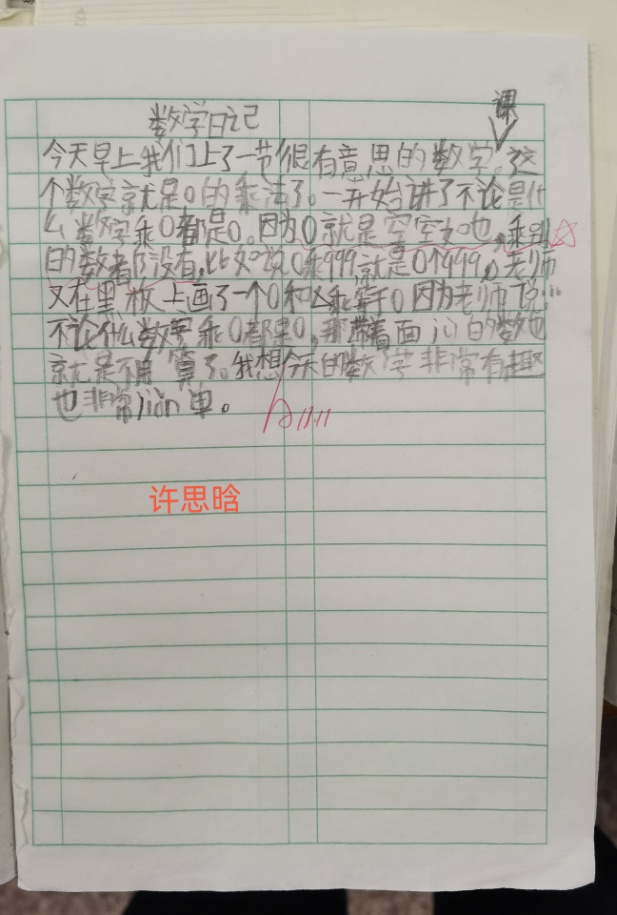 数学日记
课
今天早上我们上了一节很有意思的数学。这
个数字就是0的乘法了。一开始讲了不论是什
么数字乘0都是0。因为0就是空空如也,乘别
的数都没有,比如说0乘999就是0个999,老师
又在黑板上画了一个0和 乘等于0因为老师说:"
不论什么数字乘0都是0,那 着面 的数也
就是不用算了。我想今天的数学非常有趣
也非常jiǎn单。
许思晗